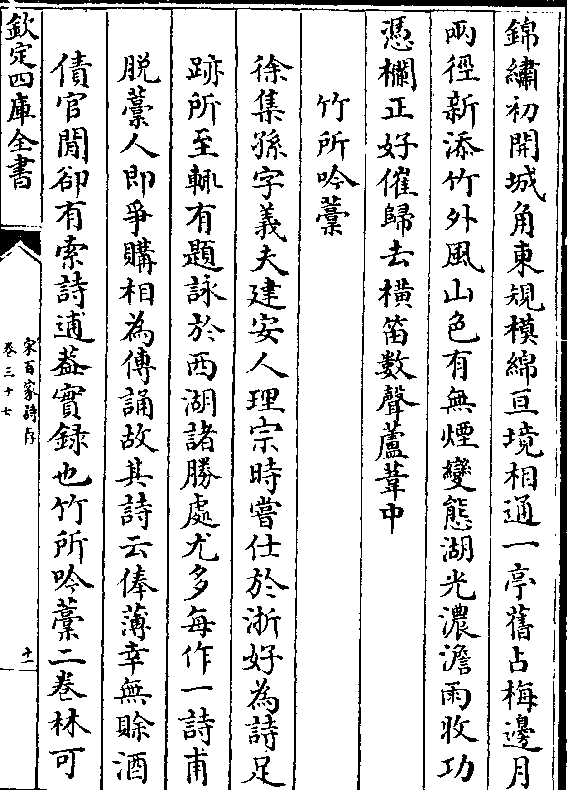 錦繡初開城角東規模綿亘境相通一亭舊占梅邊月
兩徑新添竹外風山色有無煙變態湖光濃澹雨收功
憑欄正好催歸去横笛數聲蘆葦中
竹所吟藁
徐集孫字義夫建安人理宗時嘗仕於浙好為詩足
跡所至輒有題詠於西湖諸勝處尤多每作一詩甫
脱藁人即爭購相為傳誦故其詩云俸薄幸無賒酒
債官閒卻有索詩逋葢實録也竹所吟藁二卷林可
欽定四庫全書
宋百家詩存
卷三十七
十一